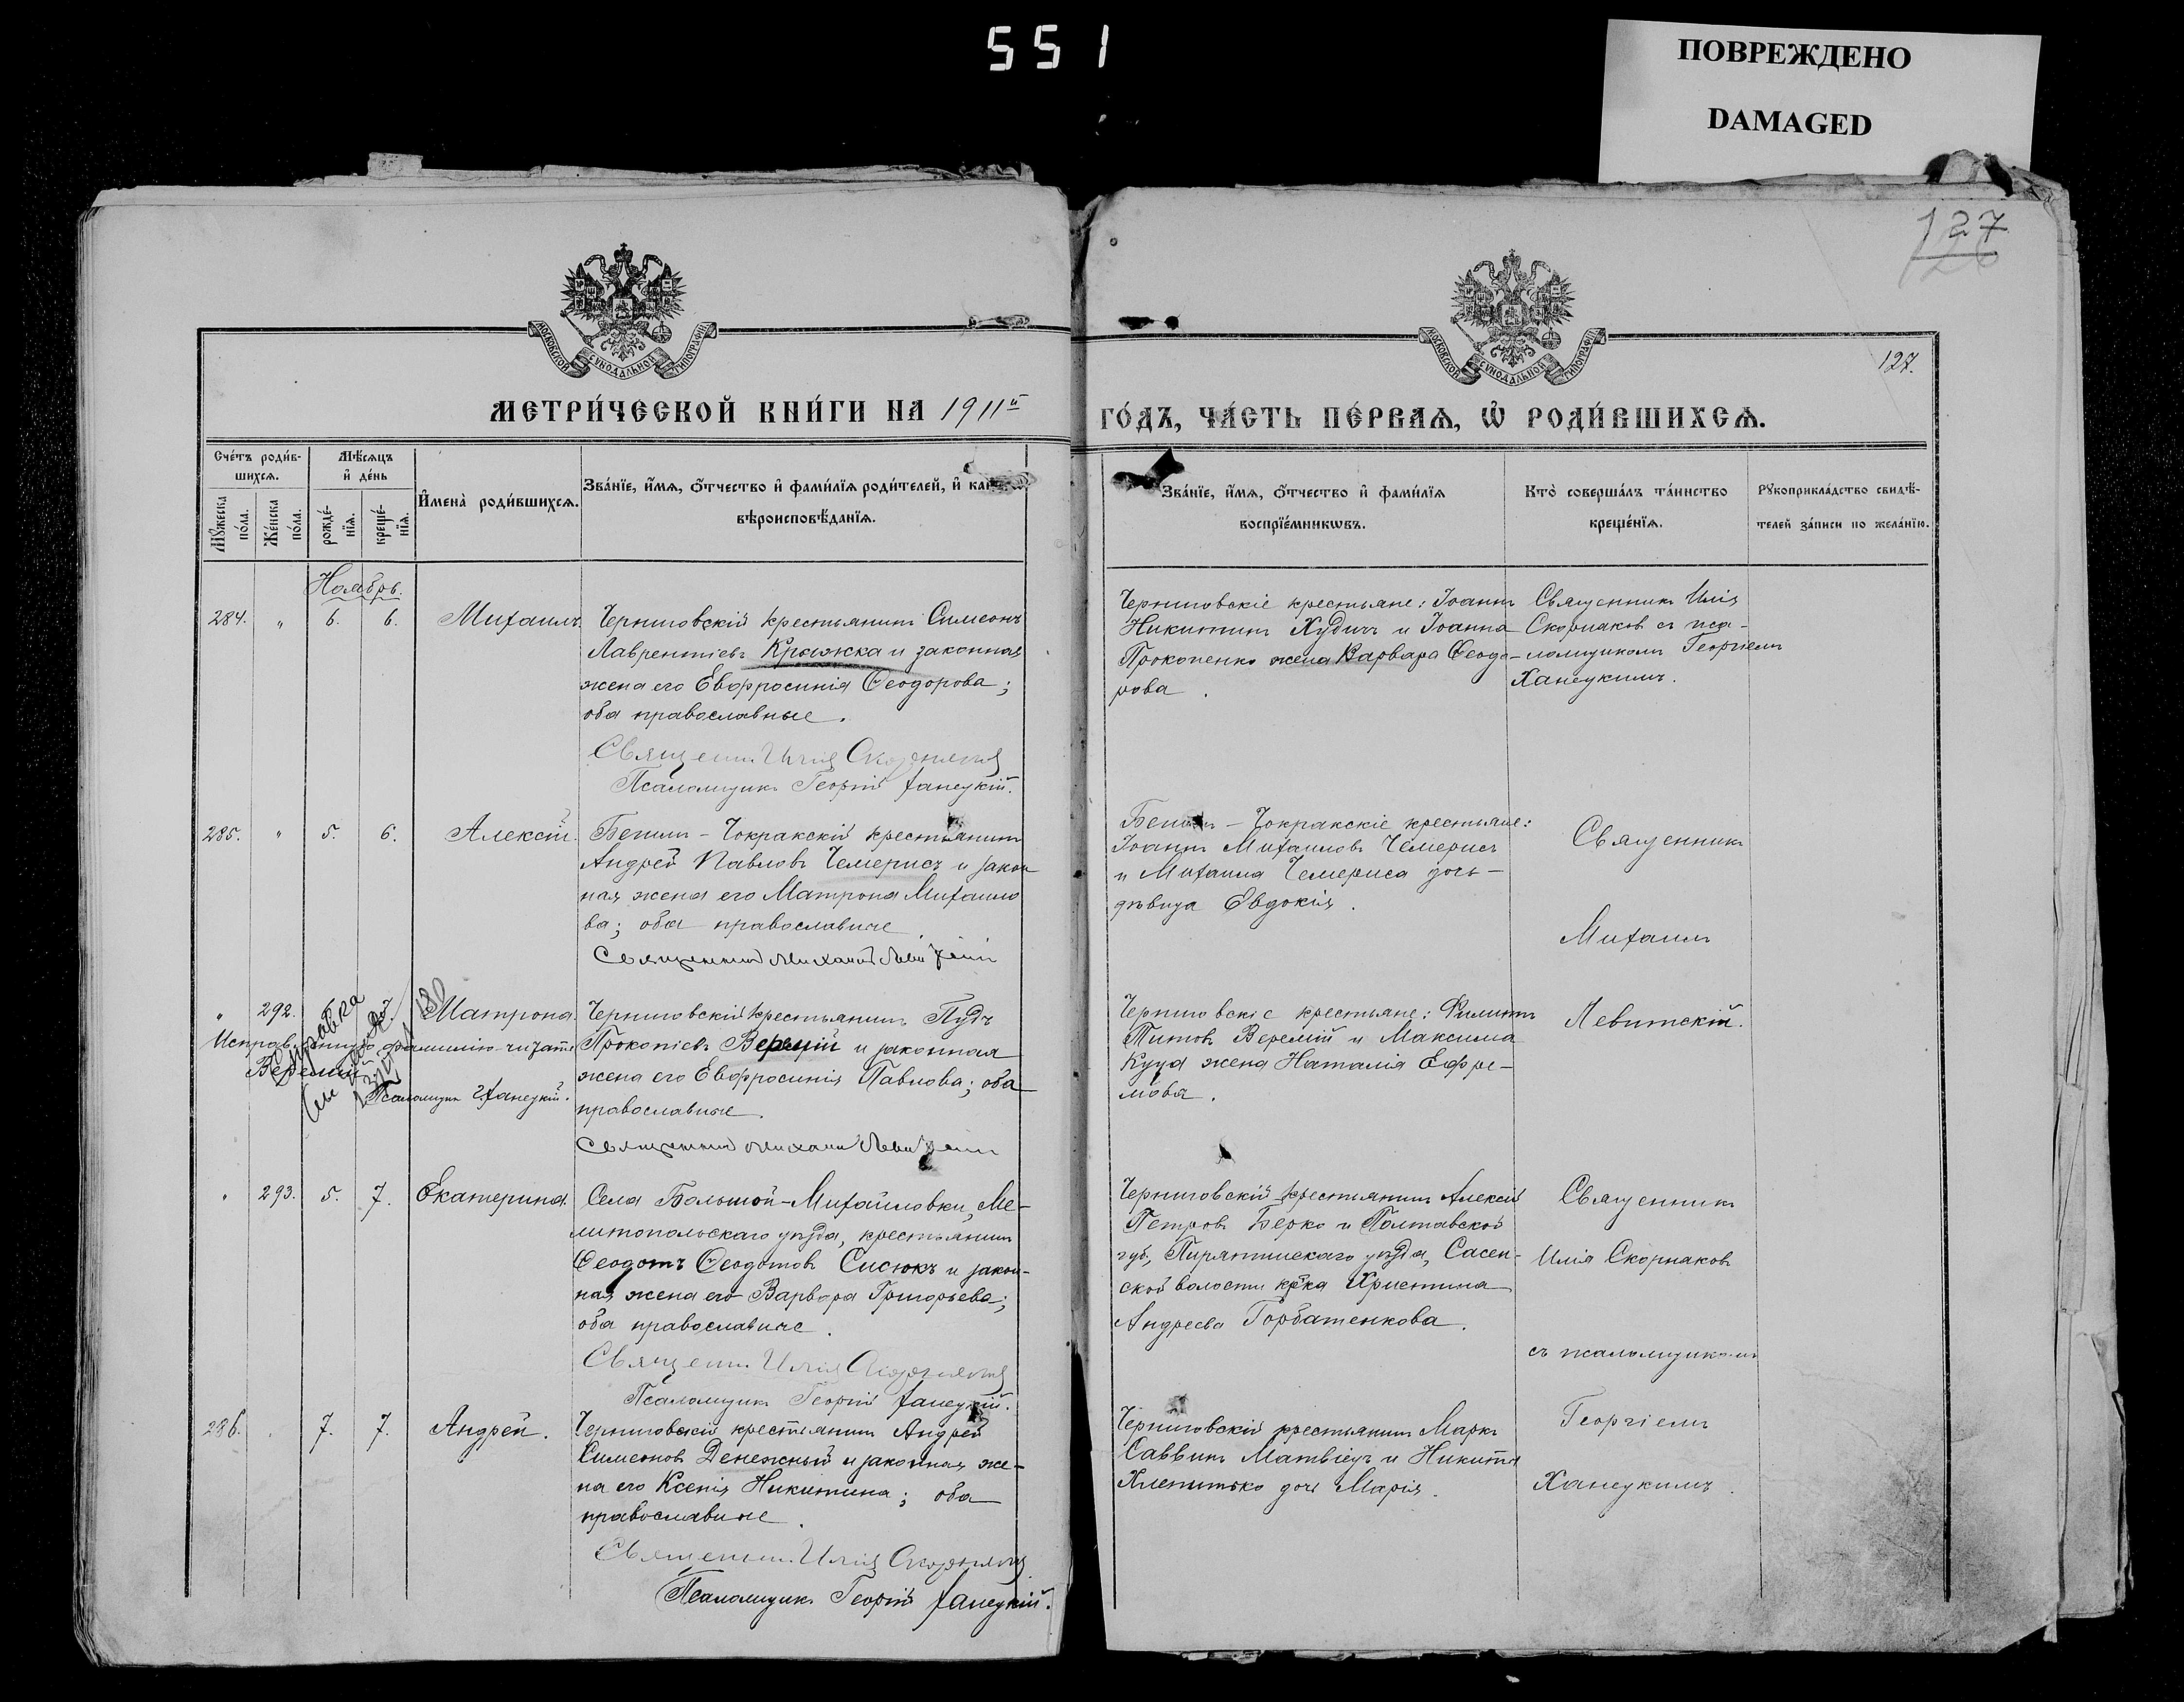 551
ПОВРЕЖДЕНО
DAMAGED
127
126
МОСКОВСКОЙ СУНОДАЛЬНОЙ ТИПОГРАФІИ
МОСКОВСКОЙ СУНОДАЛЬНОЙ ТИПОГРАФІИ
127.
МЕТРИ́ЧЕСКОЙ КНИ́ГИ НА 1911й ГО́ДЪ, ЧА́СТЬ ПЕ́РВАѦ, Ѡ҆ РОДИ́ВШИХСѦ.
Сче́тъ роди́в-
шихсѧ.
Мѣ́сѧцъ
и҆ де́нь
Мꙋ́жеска
по́ла.
Же́нска
по́ла.
рожде́-
нїѧ.
креще́-
нїѧ.
И҆мена̀ роди́вшихсѧ.
Зва́нїе, и҆́мѧ, ѻ҆́тчество и҆ фами́лїѧ роди́телей, и҆
вѣроисповѣ́данїѧ.
Зва́нїе, и҆́мѧ, ѻ҆́тчество и҆ фами́лїѧ
воспрїе́мникѡвъ.
Кто̀ соверша́лъ та́инство
креще́нїѧ.
Рꙋкоприкла́дство свидѣ́-
телей за́писи по жела́нїю.
Ноябрь.
284. " 6. 6. Михаилъ.
Черниговскій крестьянинъ Симеонъ
Лаврентіевъ Кряжка и законная
жена его Евфросинія Ѳеодорова;
оба православные.
Священ. Илія Скорняков
Псаломщикъ Георгій Ханецкій.
Черниговскіе крестьяне: Іоаннъ
Никитинъ Худичъ и Іоанна
Прокопенко жена Варвара Ѳеодо-
рова.
Священникъ Илія
Скорняковъ съ пса-
ломщикомъ Георгіемъ
Ханецкимъ.
285. " 5. 6. Алексій.
Бешуи-Чокракскій крестьянинъ
Андрей Павловъ Чемерисъ и закон
ная жена его Матрона Михаило
ва; оба православные
Священник Михаил Левитский
Чокракскіе крестьяне:
Іоаннъ Михаиловъ Чемерисъ
и Михаила Чемериса дочь-
дѣвица Евдокія.
Священникъ
Михаилъ
Левитскій.
" 292. 7. Матрона.
Справка
Исправленную фамилію читать
Веремій
Псаломщикъ Г. Ханецкій.
Черниговскій крестьянинъ Пудъ
Прокопіевъ Веремій и законная
жена его Евфросинія Павлова; оба
православные.
Священник Михаил Левитский
Черниговскіе крестьяне: Филиппъ
Титовъ Веремій и Максима
Куца жена Наталія Ефре-
мова.
" 293. 5. 7. Екатерина.
Села Большой-Михайловки, Ме-
литопольскаго уѣзда, крестьянинъ
Ѳеодотъ Ѳеодотовъ Сисюкъ и закон-
ная жена его Варвара Григорьева;
оба православные.
Священ. Илія Скорняков
Псаломщикъ Георгій Ханецкій.
Черниговскій крестьянинъ Алексій
Петровъ Берко и Полтавской
губ., Пирятинскаго уѣзда, Сасен-
ской волости кр-ка Христина
Андреева Горбатенкова.
Священникъ
Илія Скорняковъ
съ псаломщикомъ
Георгіемъ
Ханецкимъ.
286. 7. 7. Андрей.
Черниговскій крестьянинъ Андрей
Симеоновъ Денежный и законная же-
на его Ксенія Никитина; оба
православные.
Священ. Илія Скорняков
Псаломщикъ Георгій Ханецкій.
Черниговскій крестьянинъ Маркъ
Саввинъ Матвіецъ и Никиты
Хлепитько дочь Марія.